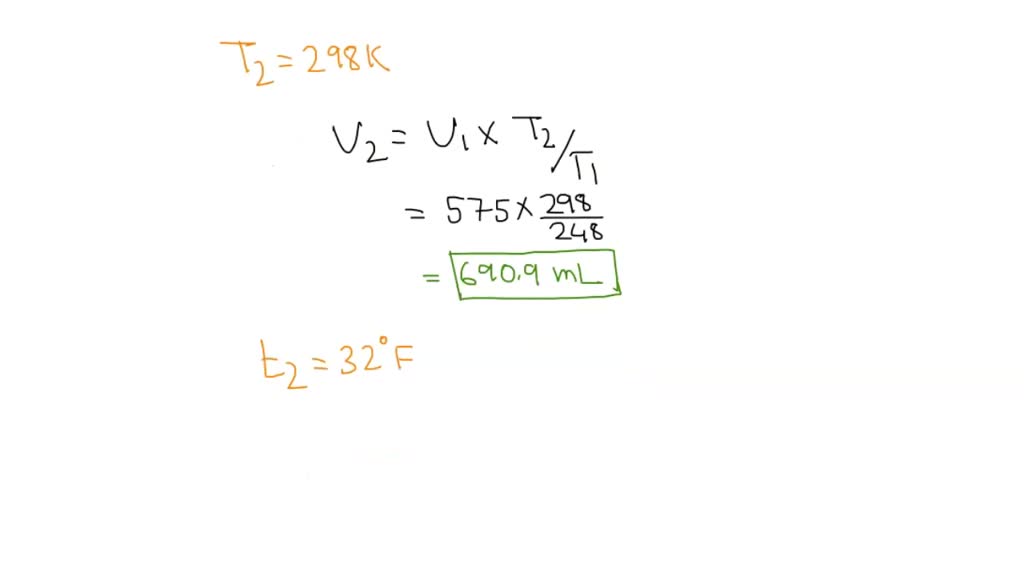 T₂ = 298K
V₂ = V₁ × T₂/T₁
= 575 × 298/248
= 690.9 mL
t₂ = 32°F